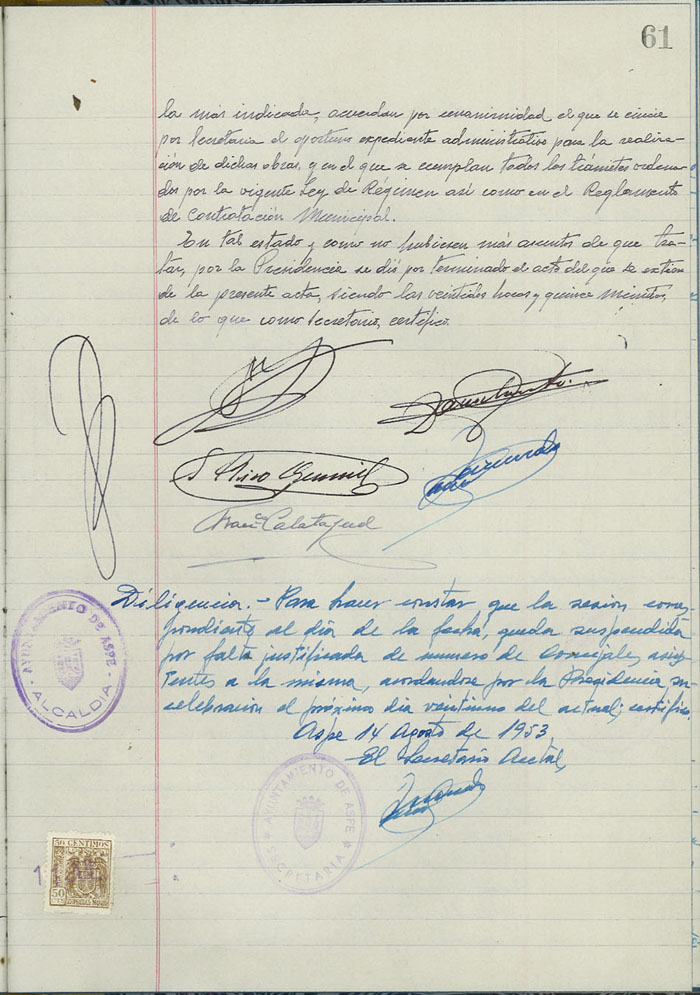 61
la más indicada, acuerdan por unanimidad el que se inicie
por Secretaria el oportuno expediente administrativo para la realiza-
ción de dichas obras, y en el que se cumplan todos los trámites ordena-
dos por la vigente Ley de Régimen así como en el Reglamento
de Contratación Municipal.
En tal estado y como no hubiesen más asuntos de que tra-
tar, por la Presidencia se dió por terminado el acto del que se extien-
de la presente acta, siendo las veintidos horas y quince minutos,
de lo que como Secretario, certifico.
Calatayud
Diligencia.- Para hacer constar, que la sesion corres-
pondiente al día de la fecha, queda suspendida
por falta justificada de numero de Concejales asis-
tentes a la misma, acordandose por la Presidencia, su
celebracion el próximo dia veintiuno del actual; certifico.
Aspe 14 Agosto de 1953
El Secretario Acctal,
AYUNTAMIENTO DE ASPE
ALCALDIA
AYUNTAMIENTO DE ASPE
SECRETARIA
50 CENTIMOS
50